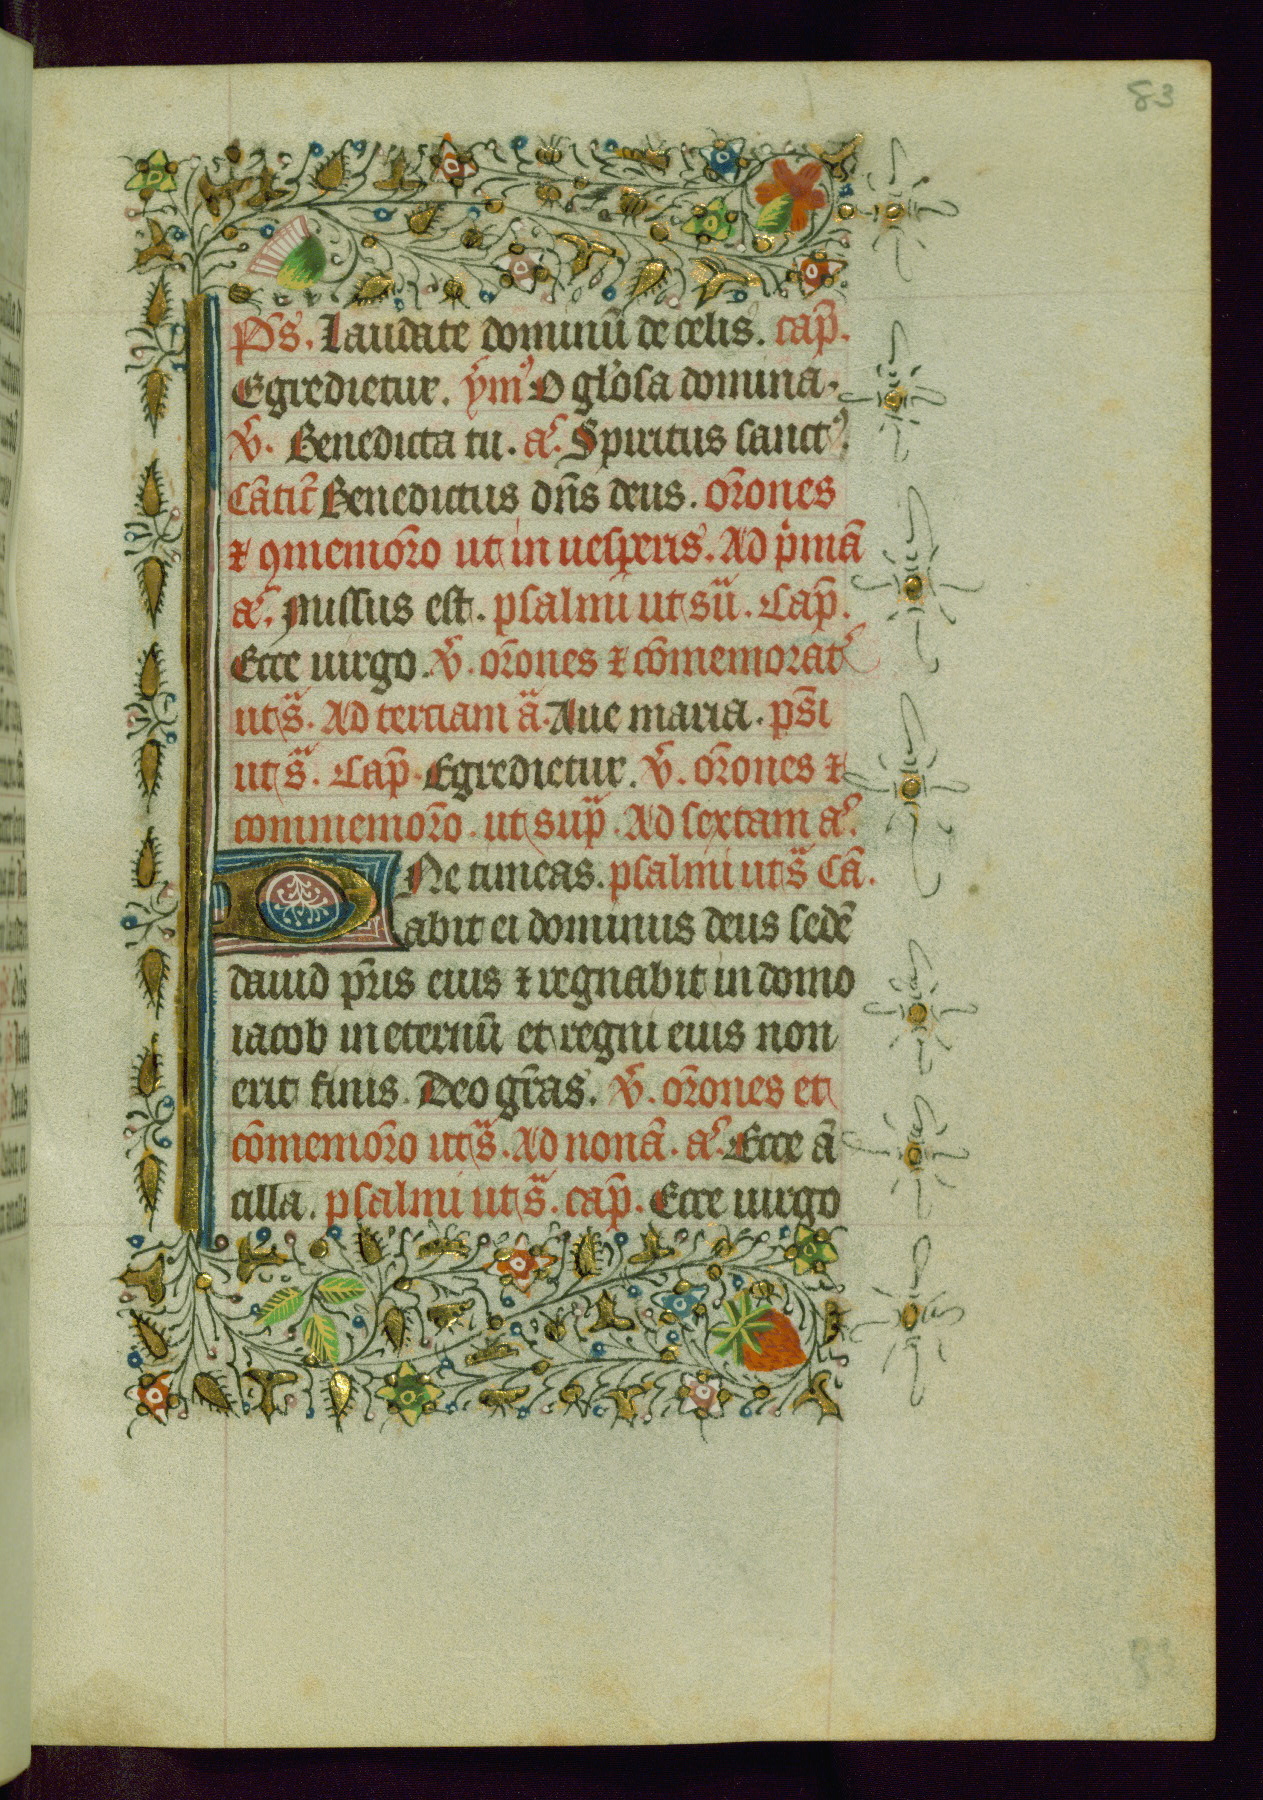 83
Ps. Laudate dominū de celis. cap̄.
Egredietur. ym̄⁹ O gl'osa domina.
V̄. Benedicta tu. a⁹. Spiritus sanct⁹.
Cātic̄ Benedictus dn̄s deus. or̄ones
⁊ ꝯmemor̄o ut in uesperis. Ad p'mā
a⁹. Missus est. psalmi ut sū. Cap̄.
Ecce uirgo. V̄. or̄ones ⁊ cōmemorat⁹
ut sᵃ. Ad terciam ā. Aue maria. ps̄i
ut sᵃ. Cap̄. Egredietur. V̄. or̄ones ⁊
commemor̄o. ut supᵃ. Ad sextam a⁹.
Ne timeas. psalmi ut sᵃ Cā.
Dabit ei dominus deus sedē
dauid pr̄is eius ⁊ regnabit in domo
iacob in eternū et regni eius non
erit finis. Deo gr̄as. V̄. or̄ones et
cōmemor̄o ut sᵃ. Ad nonā. a⁹. Ecce ā
cilla. psalmi ut sᵃ. cap̄. Ecce uirgo